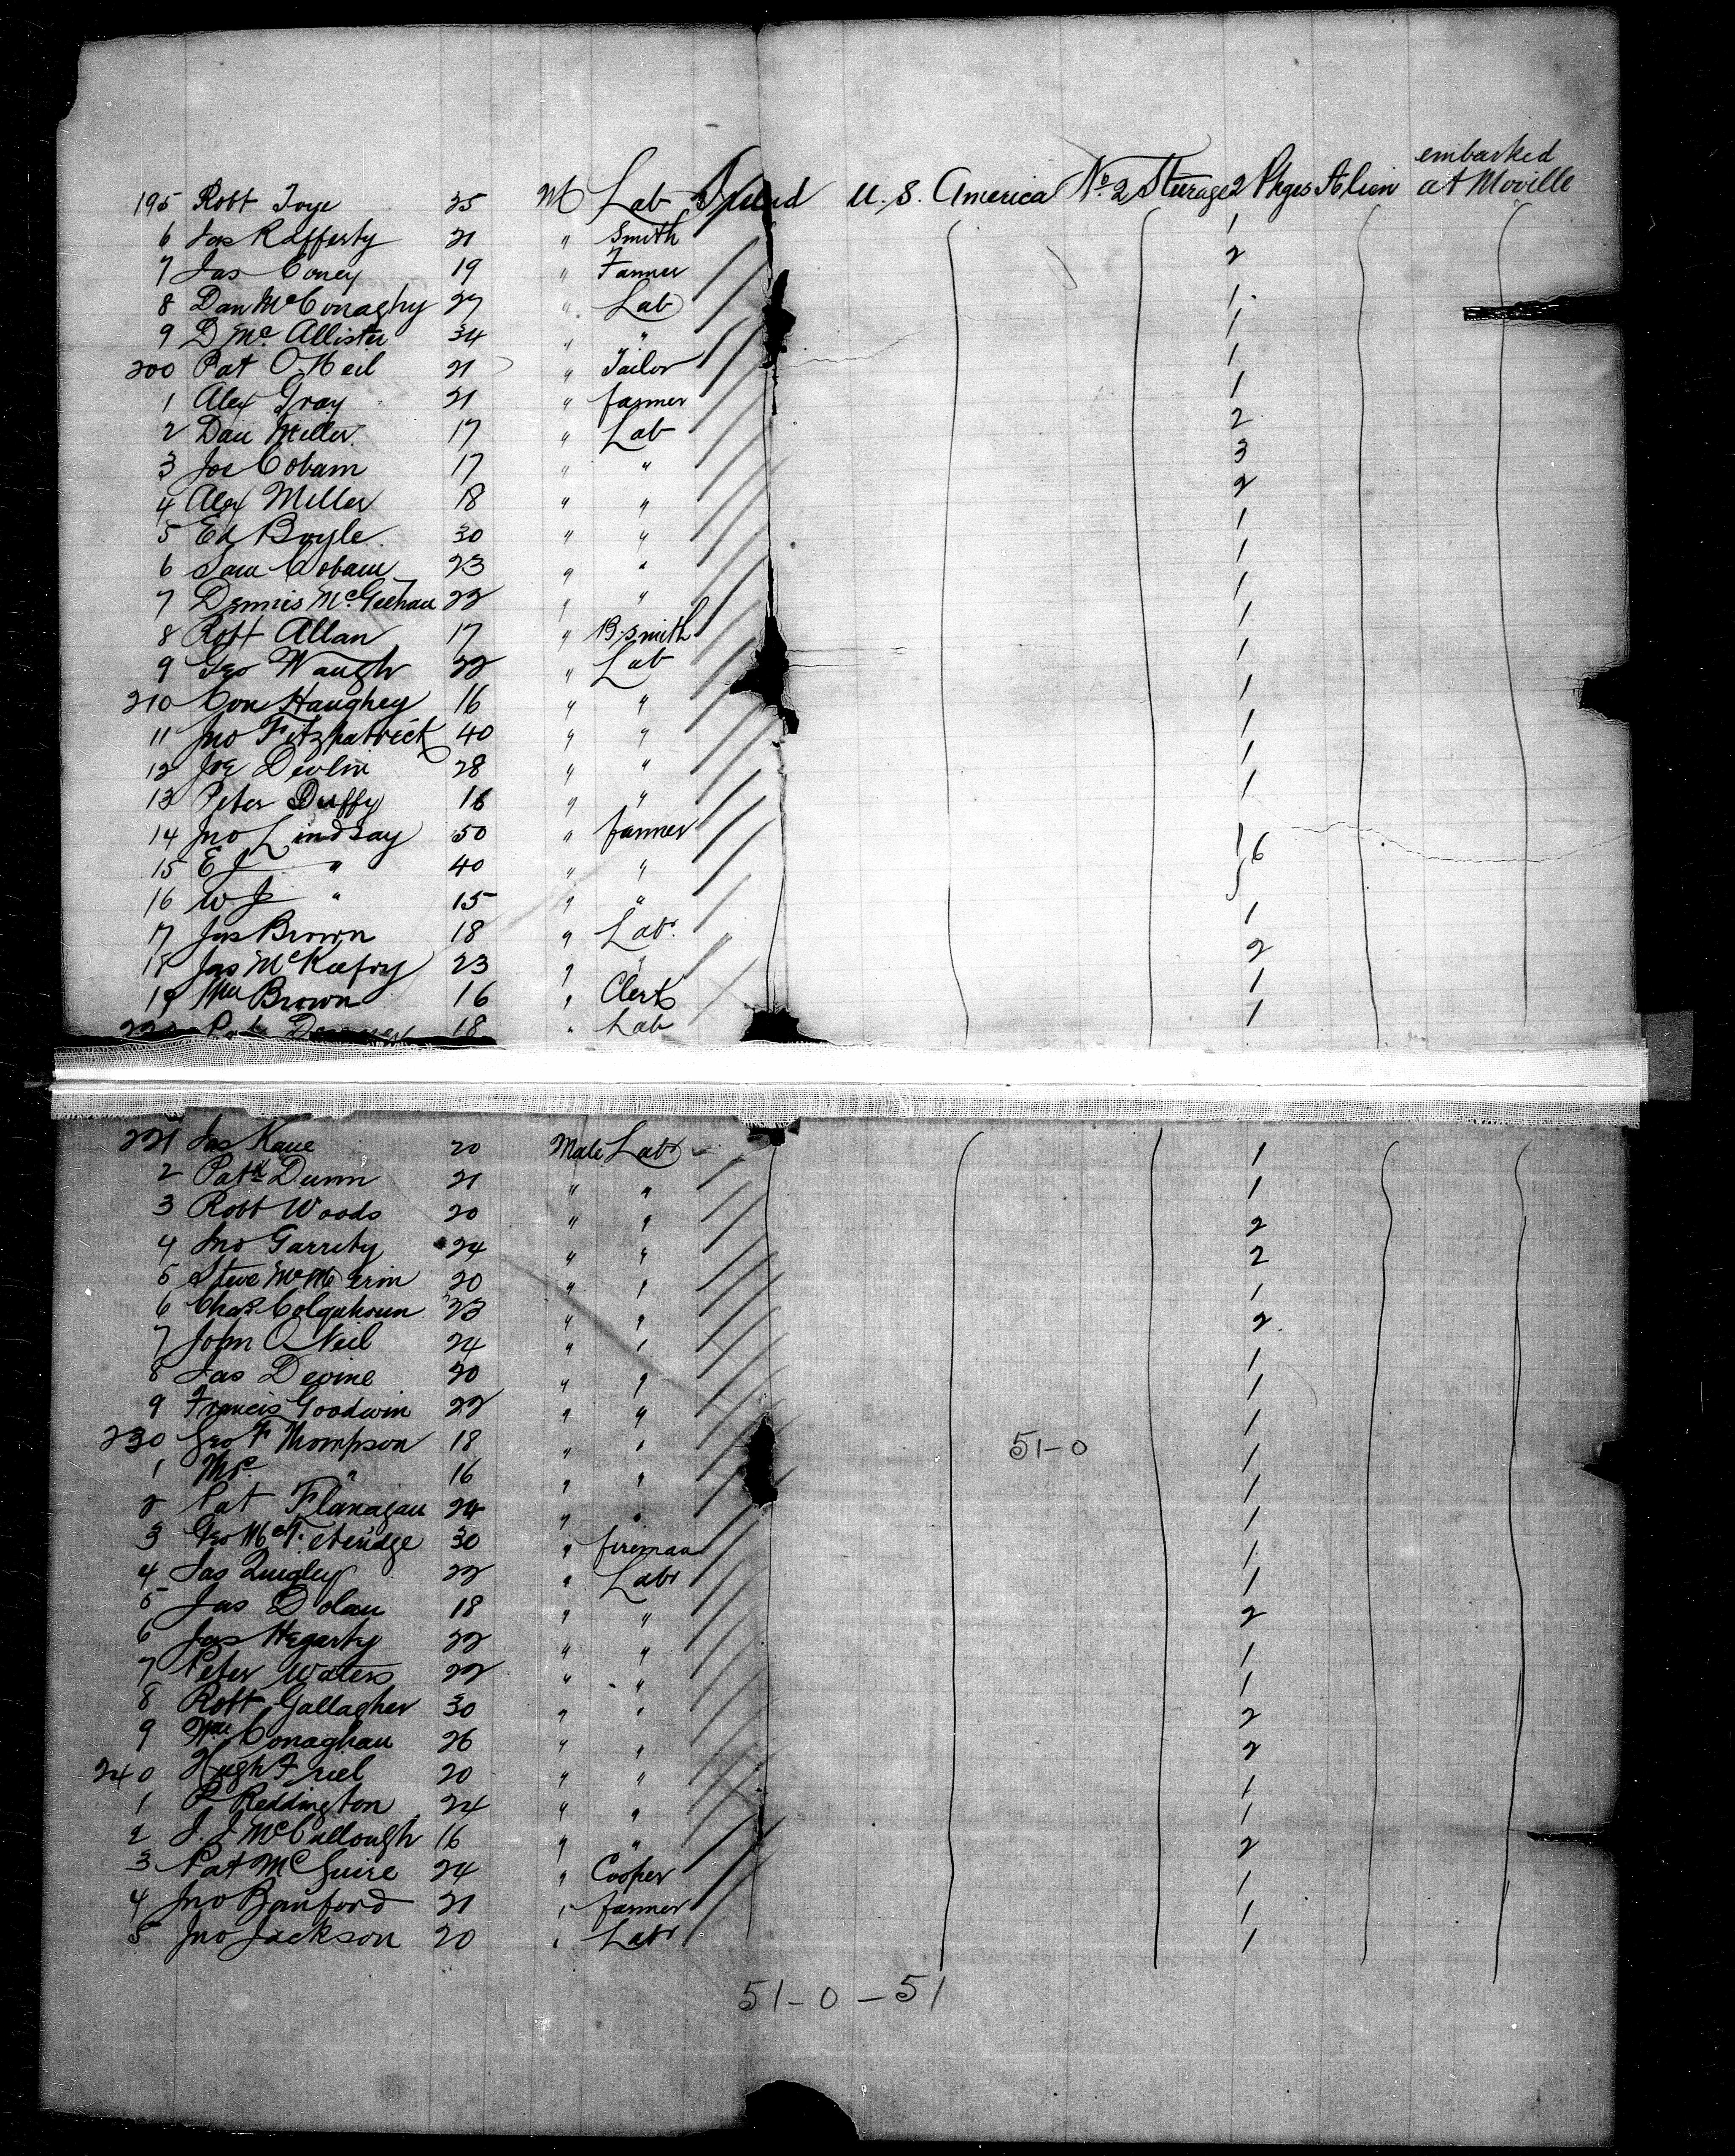 embarked
195 Robt Toye 35 M Lab Ireland U. S. America No. 2 Steerage 2 Pkges Alien at Moville
6 Jas Rafferty 21 " Smith 1
7 Jas Coney 19 " Farmer 2
8 Dan McConaghy 27 " Lab 1
9 D McAllister 34 " " 1
200 Pat O'Neil 21 " Tailor 1
1 Alex Gray 21 " farmer 1
2 Dan Miller 17 " Lab 2
3 Joe Cobain 17 " " 3
4 Alex Miller 18 " " 2
5 Ed Boyle 30 " " 1
6 Sam Cobain 23 " " 1
7 Dennis McGeehan 22 " " 1
8 Robt Allan 17 " B. smith 1
9 Geo Waugh 22 " Lab 1
210 Con Haughey 16 " " 1
11 Jno Fitzpatrick 40 " " 1
12 Joe Devlin 28 " " 1
13 Peter Duffy 16 " " 1
14 Jno Lindsay 50 " farmer
15 E J " 40 " " 6
16 W. J " 15 " "
17 Jas Brown 18 " Lab. 1
18 Jas McKaefry 23 " " 2
19 Wm Brown 16 " Clerk 1
220 Pat 18 " Lab 1
221 Jas Kane 20 Male Labr 1
2 Patk Dunn 21 " " 1
3 Robt Woods 20 " " 2
4 Jno Garrity 24 " " 2
5 Steve 20 " " 1
6 Chas Colquhoun 23 " " 2
7 John O Neil 24 " " 1
8 Jas Devine 20 " " 1
9 Francis Goodwin 22 " " 1
230 Geo F Thompson 18 " " 51-0 1
1 " 16 " " 1
2 Pat Flanagan 24 " " 1
3 Geo 30 " fireman 1
4 Jas Quigley 22 " Labr 1
5 Jas Dolan 18 " " 2
6 Jas Hegarty 22 " " 1
7 Peter Waters 22 " " 1
8 Robt Gallagher 30 " " 2
9 Wm Conaghan 26 " " 2
240 Hugh Friel 20 " " 1
1 P Reddington 24 " " 1
2 J. J McCullough 16 " " 2
3 Pat McGuire 24 " Cooper 1
4 Jno Banford 21 " farmer 1
5 Jno Jackson 20 " Labr 1
51-0-51